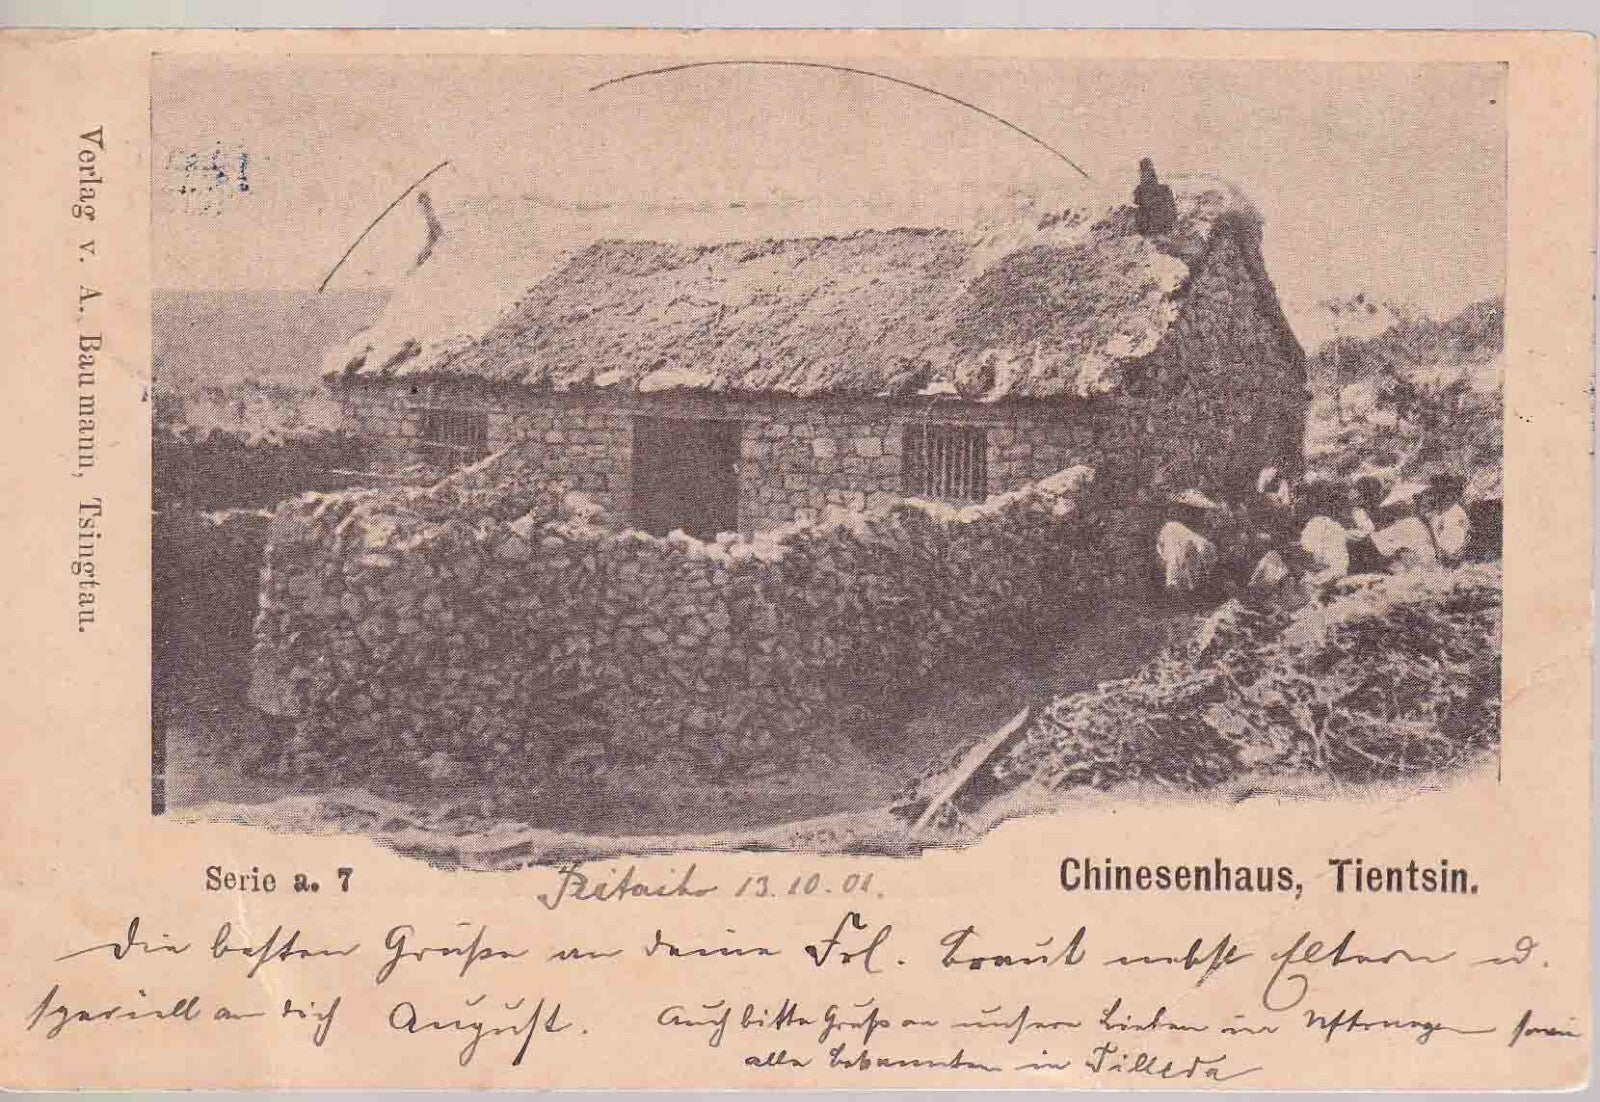 Verlag v. A. Baumann, Tsingtau.
Serie a. 7
13.10.01.
Chinesenhaus, Tientsin.
Die besten Grüße an deine Frl. Braut nebst Eltern u.
speciell an dich August. Auch bitte Gruß an unsere Lieben in sowie
alle Bekannten in Tilleda